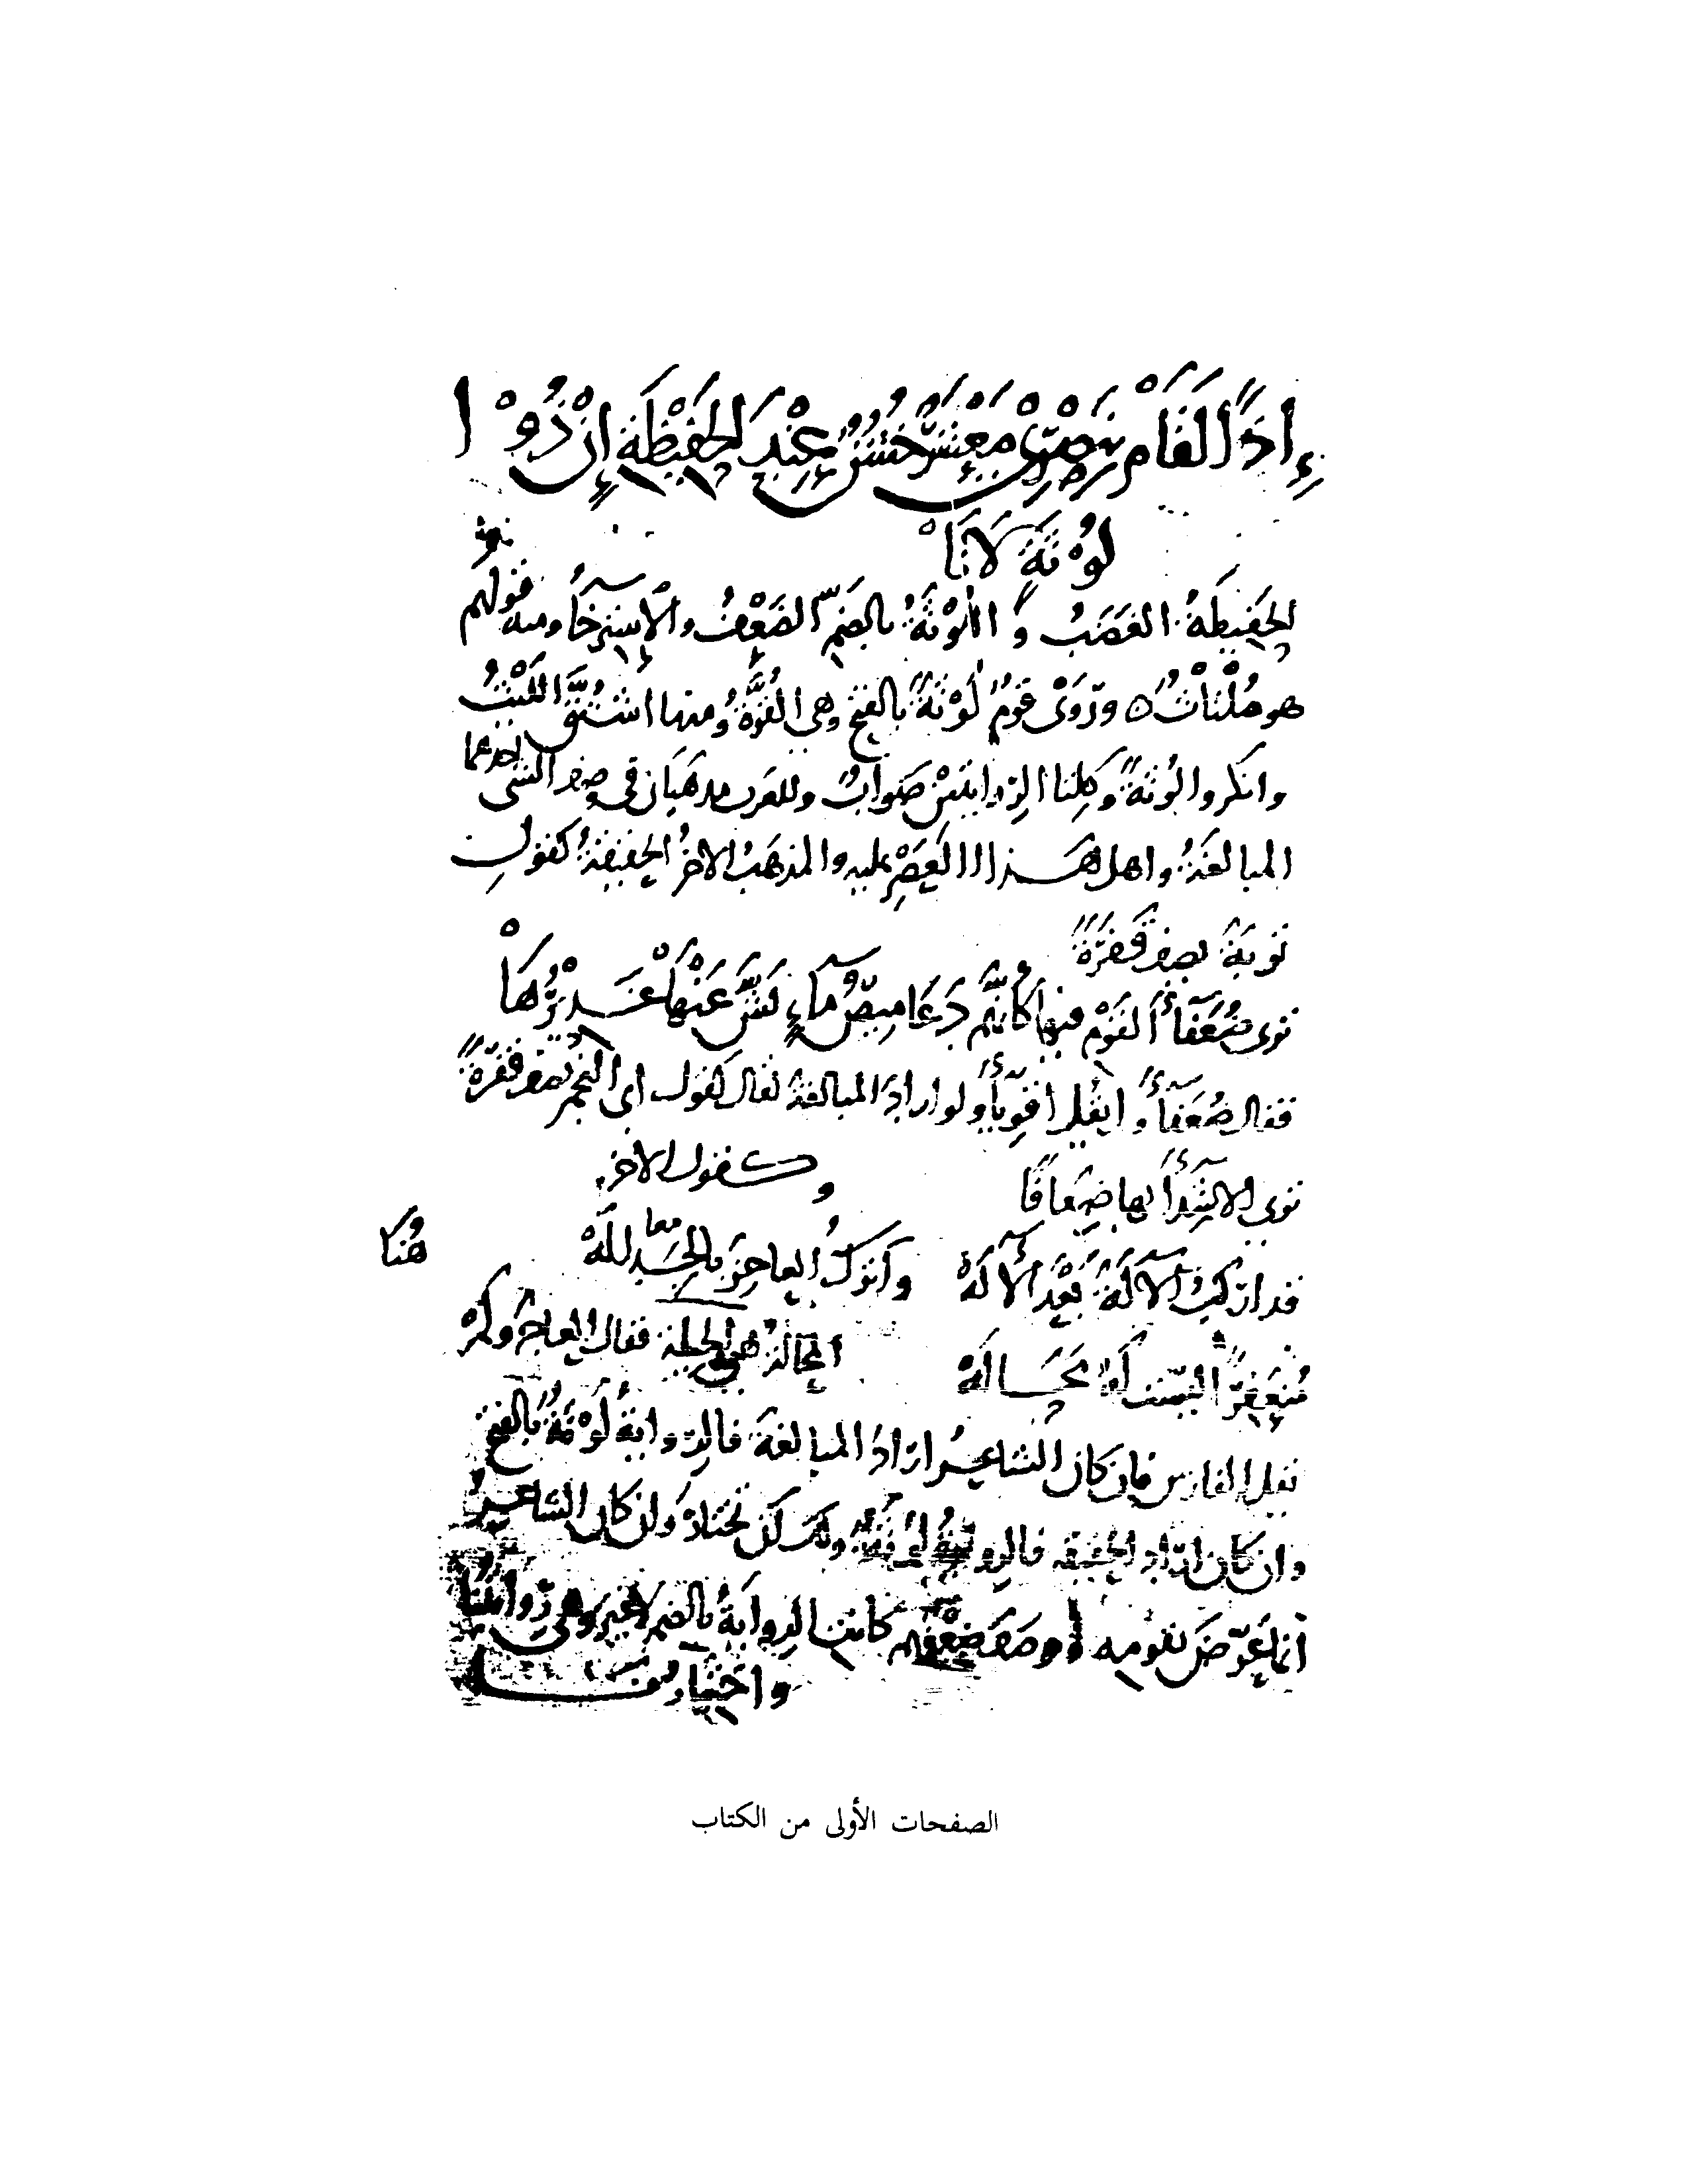 إِذًا لَقَامْ بِنَصْرِيْ مَعْشَرٌ خُشُنٌ عِنْدَ الْحَفِيْظَةِ إِنْ ذُوْ ا
لُوْثَةٍ لَانَاْ
الحَفِيظَةُ الغَضَبُ وَ اللُّوْثَةُ بالضَمِّ الضَعْفُ والاسترخَاءُ ومنه قولهم
هو مُلْتاثٌ ورَوَى قومٌ لَوْثَةٌ بالفتحِ وهي القُوَّةُ ومنها اشتُقَّ اللَّيْثُ
وانكروا لُوثَةً وكلتا الرّوايتين صَوابٌ وللعرب مذهَبَان في وصف الشى احدهما
المبالغَةُ واهل هذا العَصْرِ عليه والمذهَبُ الاخرُ الحقيقةُ كقولِ
تَوبَةَ يصف قَفْرَةً
ترى ضُعَفَآءَ القَوْمِ فيها كأنَّهم دَعَامِيصُ مآءٍ نَشَّ عَنْهَا غَدِيْرُهَاْ
فقال ضُعَفآءَ و لم يقل اقوِيآءَ ولو ارادَ المبالغةَ لقال كقول ابى النجم يصف قَفْرَةً
ترى الاشِدّآءَ بها ضِعَافًا
وكقول الاخر
قد اركبُ الآلَةَ بَعْدَ الآلَهْ وأترُكُ العاجِزَ بالجَدَالَهْ
معا
هُنا
مُنعَفِرًا ليسَت لَهُ مَحَالَهْ
المحالة هي الحيلة فقال العاجزَ ولَمْ
يقل الفارس فان كان الشاعِرُ ارَادَ المبالغةَ فالرّوايةُ لَوْثَةٌ بالفتح
وان كان ارَادَ الحقيقه فالروايةُ لُوْثَةٌ ولك أن تختارَ وان كان الشاعِرُ
انما عَرَّضَ بقومه أو وصفَ ضَعْفَهم كانت الروايَةُ بالضم لا غير وهي رِوايتُنا
واختيارُنا
الصفحات الأولى من الكتاب